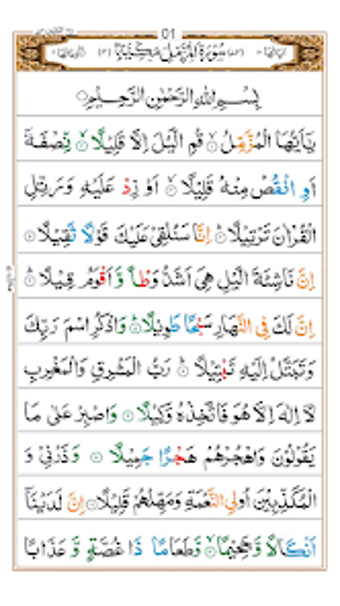 01
سُوْرَةُ الْمُزَّمِّلِ مَكِّيَّةٌ
بِسْمِ اللّٰهِ الرَّحْمٰنِ الرَّحِيْمِ
يٰۤاَيُّهَا الْمُزَّمِّلُ ۙ قُمِ الَّيْلَ اِلَّا قَلِيْلًا ۙ نِّصْفَهٗۤ
اَوِ انْقُصْ مِنْهُ قَلِيْلًا ۙ اَوْ زِدْ عَلَيْهِ وَرَتِّلِ
الْقُرْاٰنَ تَرْتِيْلًا ؕ اِنَّا سَنُلْقِيْ عَلَيْكَ قَوْلًا ثَقِيْلًا
اِنَّ نَاشِئَةَ الَّيْلِ هِيَ اَشَدُّ وَطْاً وَّاَقْوَمُ قِيْلًا ؕ
اِنَّ لَكَ فِي النَّهَارِ سَبْحًا طَوِيْلًا ؕ وَاذْكُرِ اسْمَ رَبِّكَ
وَتَبَتَّلْ اِلَيْهِ تَبْتِيْلًا ؕ رَبُّ الْمَشْرِقِ وَالْمَغْرِبِ
لَاۤ اِلٰهَ اِلَّا هُوَ فَاتَّخِذْهُ وَكِيْلًا وَاصْبِرْ عَلٰى مَا
يَقُوْلُوْنَ وَاهْجُرْهُمْ هَجْرًا جَمِيْلًا وَذَرْنِيْ وَ
الْمُكَذِّبِيْنَ اُولِي النَّعْمَةِ وَمَهِّلْهُمْ قَلِيْلًا اِنَّ لَدَيْنَاۤ
اَنْكَالًا وَّجَحِيْمًا ۙ وَّطَعَامًا ذَا غُصَّةٍ وَّعَذَابًا